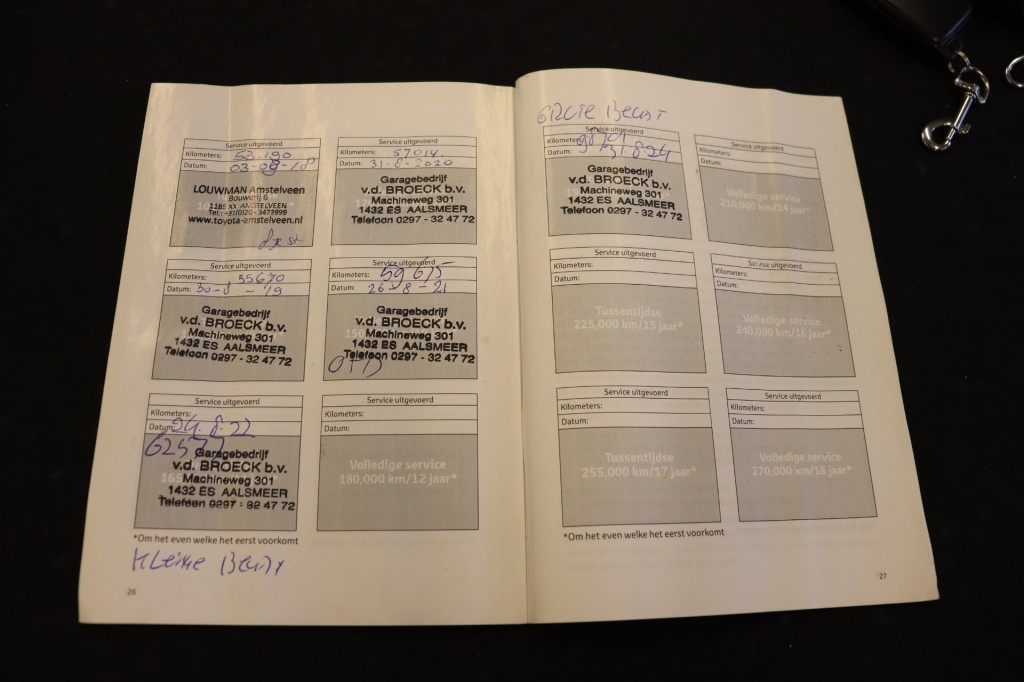 Service uitgevoerd
Kilometers: 53.190
Datum: 03-09-18
LOUWMAN Amstelveen
Bouwerij 6
1185 XX AMSTELVEEN
Tel.: +31(0)20 - 3473999
www.toyota-amstelveen.nl
Service uitgevoerd
Kilometers: 57014
Datum: 31-8-2020
Garagebedrijf
v.d. BROECK b.v.
Machineweg 301
1432 ES AALSMEER
Telefoon 0297 - 32 47 72
Service uitgevoerd
Kilometers: 55670
Datum: 30-8-19
Garagebedrijf
v.d. BROECK b.v.
Machineweg 301
1432 ES AALSMEER
Telefoon 0297 - 32 47 72
Service uitgevoerd
Kilometers: 59675
Datum: 26-8-21
Garagebedrijf
v.d. BROECK b.v.
Machineweg 301
1432 ES AALSMEER
Telefoon 0297 - 32 47 72
Service uitgevoerd
Kilometers:
Datum: 24.8.22
Garagebedrijf
v.d. BROECK b.v.
Machineweg 301
1432 ES AALSMEER
Telefoon 0297 - 32 47 72
Service uitgevoerd
Kilometers:
Datum:
Volledige service
180,000 km/12 jaar*
*Om het even welke het eerst voorkomt
Kleine Beurt
26
Grote Beurt
Service uitgevoerd
Kilometers:
Datum: 31-8-24
Garagebedrijf
v.d. BROECK b.v.
Machineweg 301
1432 ES AALSMEER
Telefoon 0297 - 32 47 72
Service uitgevoerd
Kilometers:
Datum:
Volledige service
210,000 km/14 jaar*
Service uitgevoerd
Kilometers:
Datum:
Tussentijdse
225,000 km/15 jaar*
Service uitgevoerd
Kilometers:
Datum:
Volledige service
240,000 km/16 jaar*
Service uitgevoerd
Kilometers:
Datum:
Tussentijdse
255,000 km/17 jaar*
Service uitgevoerd
Kilometers:
Datum:
Volledige service
270,000 km/18 jaar*
*Om het even welke het eerst voorkomt
27